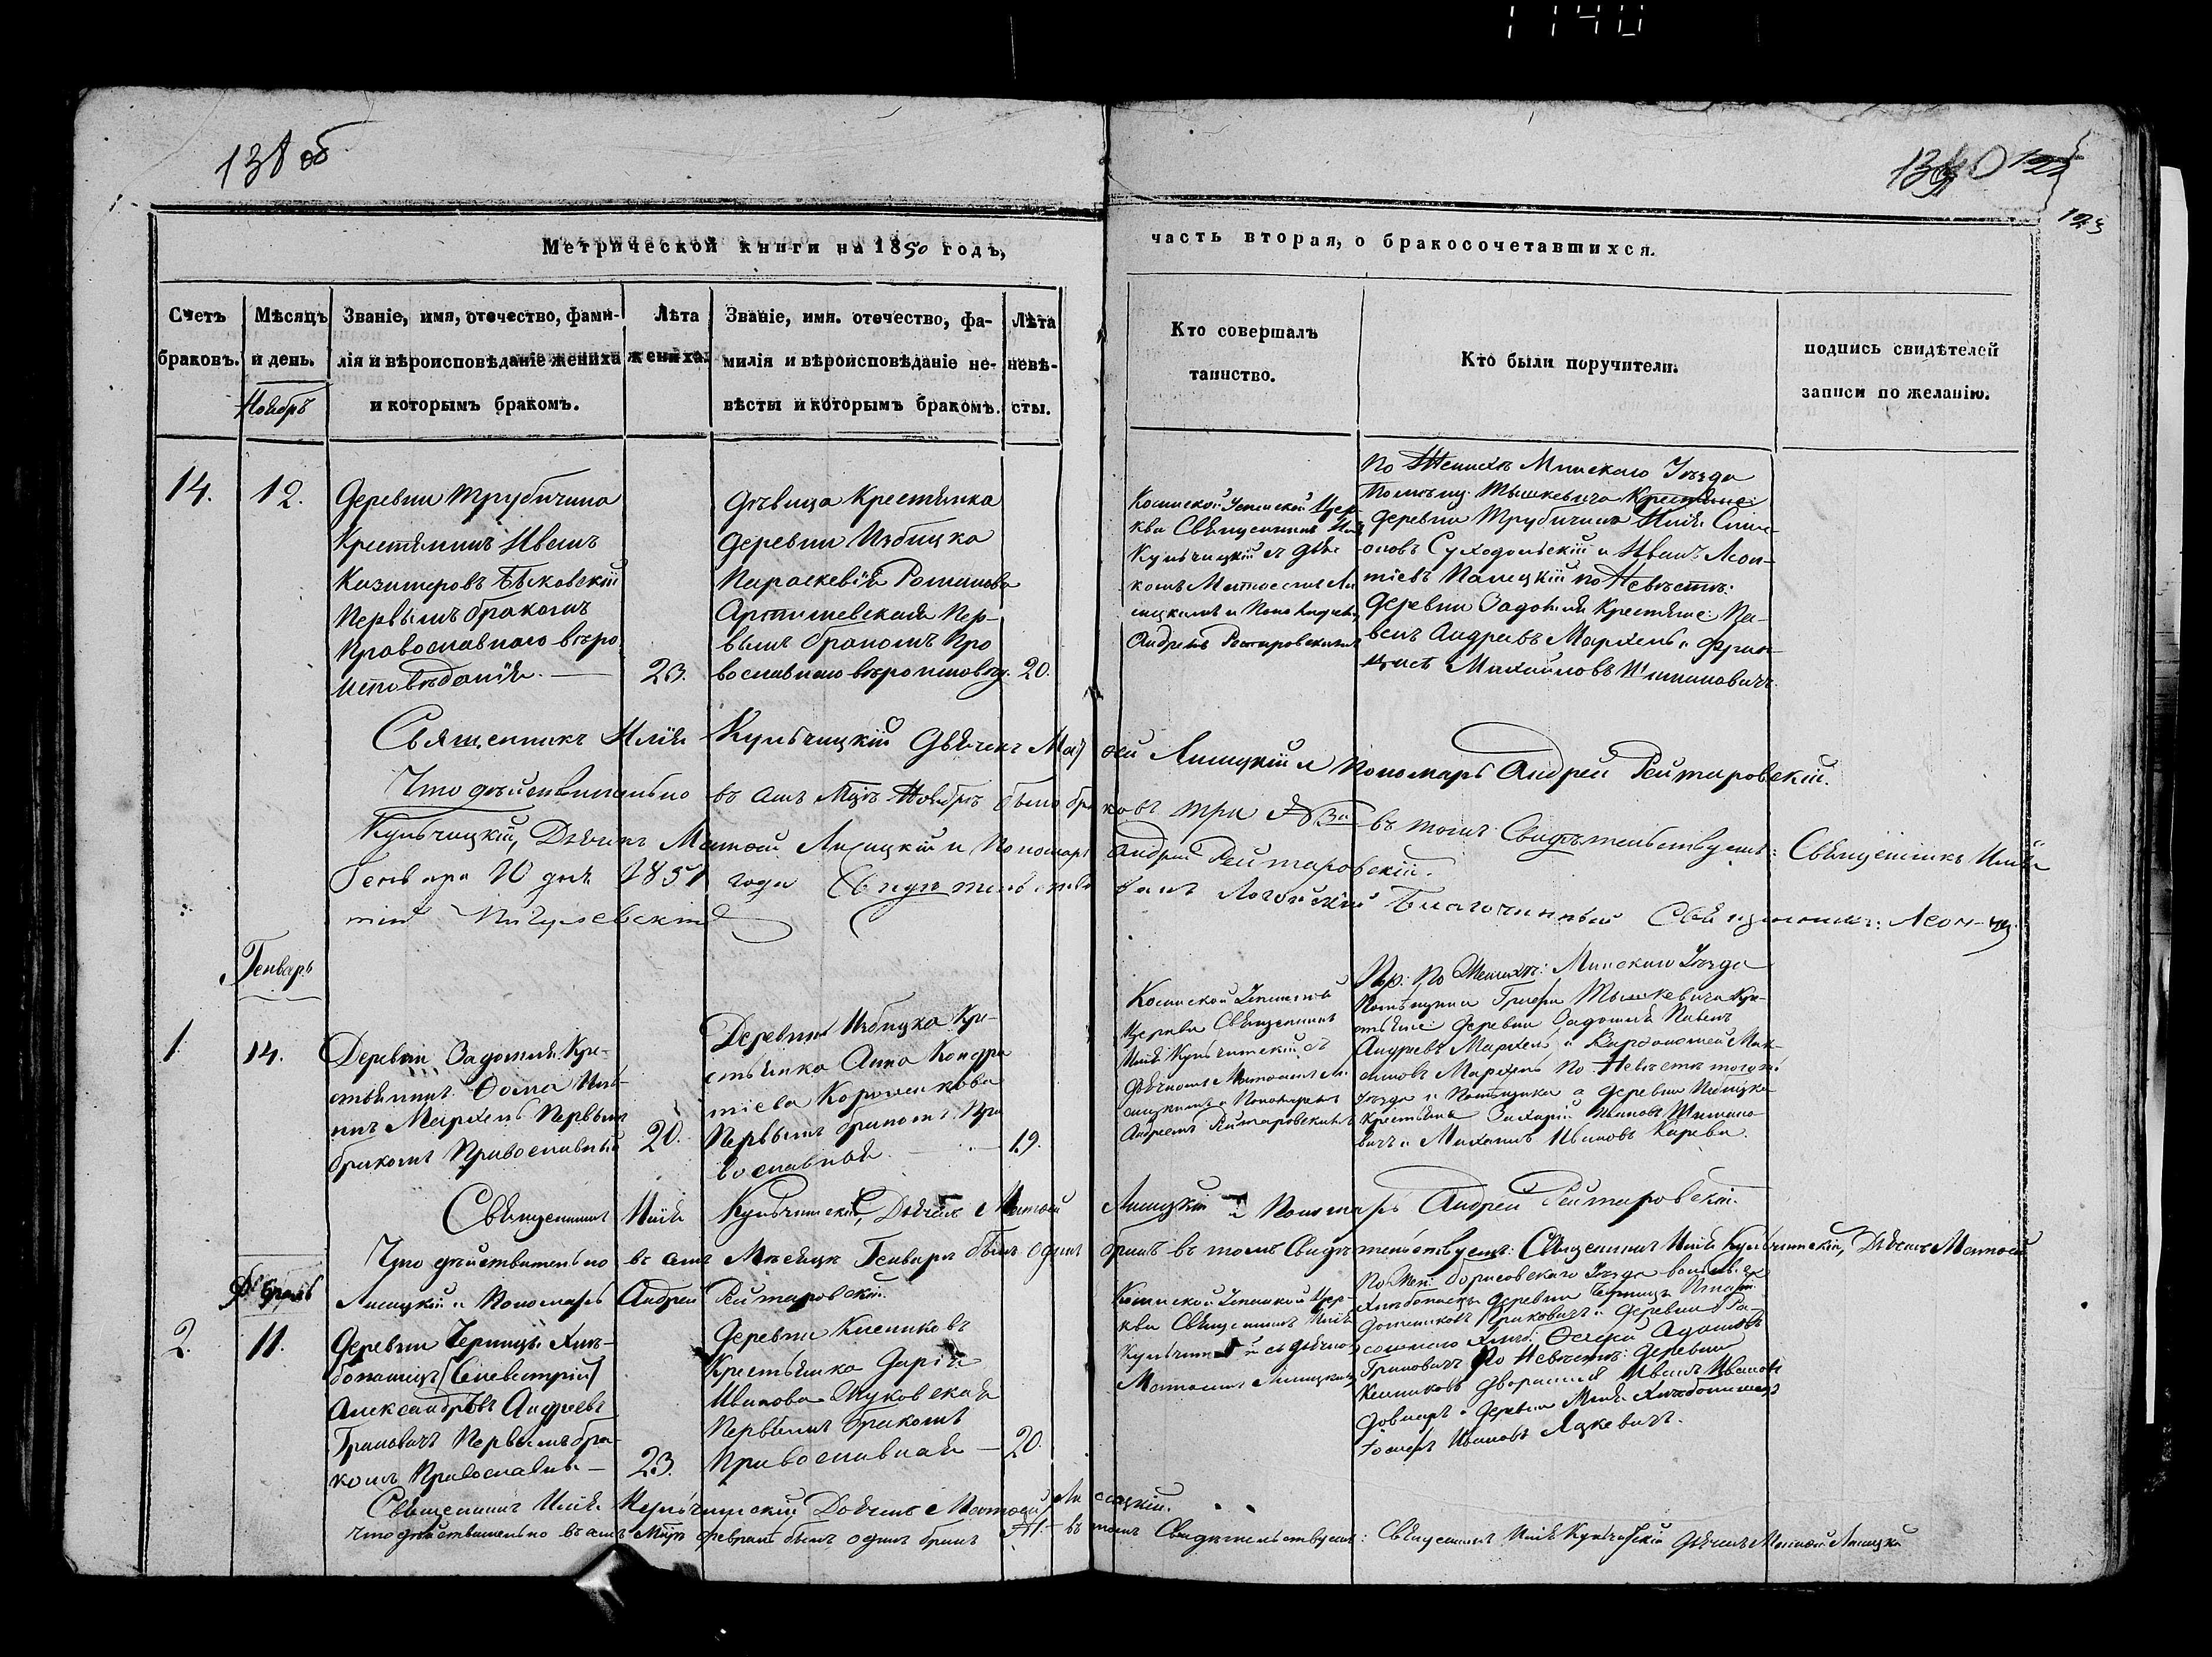 1140
138 об
123
Метрической книги на 1850 годъ,
часть вторая, о бракосочетавшихся.
Счетъ браковъ.
Мѣсяцъ и день.
Званіе, имя, отечество, фами-
лія и вѣроисповѣданіе жениха
и которымъ бракомъ.
Лѣта
жениха.
Званіе, имя. отечество, фа-
милія и вѣроисповѣданіе не-
вѣсты и которымъ бракомъ.
Лѣта
невѣ-
сты.
Кто совершалъ
таинство.
Кто были поручители.
подпись свидѣтелей
записи по желанію.
Ноябрь
14.
12.
Деревни Трубичина
Крестянинъ Иванъ
Казимеровъ Быковскій
Первымъ бракомъ
Православнаго вѣро
исповѣданія.
23.
Дѣвица Крестянка
деревни Избицка
Параскевія Романова
Артишевская Пер-
вымъ бракомъ Пра
вославнаго вѣроисповѣд.
20.
Косинской Успенской Цер-
кви Священникъ Илія
Кульчицкій съ Дья
комъ Матвеемъ Ли
сицкимъ и Пономаремъ
Андреемъ Рейтаровскимъ
По Женихѣ Минскаго Уѣзда
Помѣщ: Тышкевича Крестьяне:
деревни Трубичина Илія Сим-
оновъ Суходольскій и Иванъ Леон-
тіевъ Палецкій по Невѣстѣ:
деревни Задомля Крестяне: Па-
велъ Андреевъ Мархель и Фран-
цискъ Михайловъ Шимановичъ.
Священникъ Илія Кульчицкій Дьячекъ Матвей Лисицкій и Пономарь Андрей Рейтаровскій.
Что дѣйствительно въ семъ Мцѣ Ноябрѣ было браковъ три въ томъ Свидѣтельствуемъ: Священникъ Илія
Кульчицкій, Дьячекъ Матвей Лисицкій и Пономарь Андрей Рейтаровскій.
Генваря 10 дня 1851 года Свидѣтельствовалъ Логойскій Благочинный Священникъ: Леон-
тій Пигулевскій
Генварь
1
14.
Деревни Задомля Кре-
стьянинъ Фома
Мархель Первымъ
бракомъ Православный
20.
Деревни Избицка Кре-
стьянка Анна Кондра
тіева Короленкова
Первымъ бракомъ Пра
вославная
19.
Косинской Успенской
Церкви Священникъ
Илія Кульчитскій съ
Дьячкомъ Матвеемъ Ли
сицкимъ и Пономаремъ
Андреемъ Рейтаровскимъ
Пор: по Женихѣ: Минскаго Уѣзда
Помѣщика Графа Тышкевича Кре-
стьяне: деревни Задомля Павелъ
Андреевъ Мархель и Варфоломей Мак-
симовъ Мархель по Невѣстѣ того же
Уѣзда и Помѣщика а деревни Избицка
Крестьяне Захарій Шимано-
вичъ и Михаилъ Ивановъ Карева.
Священникъ Илія Кульчитскій, Дьячекъ Матвей Лисицкій и Пономарь Андрей Рейтаровскій.
Что дѣйствительно въ семъ Мѣсяцѣ Генварѣ былъ одинъ бракъ въ томъ Свидѣтельствуемъ: Священникъ Илія Кульчитскій, Дьячекъ Матвей
Лисицкій и Пономарь Андрей Рейтаровскій.
Февраль
2.
11.
Деревни Черницы Хлѣ-
бопашецъ (Сильвестрій)
Александровъ Андреевъ
Гриновичъ Первымъ бра-
комъ Православн.
23.
Деревни Кленниковъ
Крестьянка Дарія
Иванова Жуковская
Первымъ бракомъ
Православная
20.
Косинской Успенской Цер-
кви Священникъ Илія
Кульчит й съ Дьячко
Матвеемъ Лисицкимъ
По Жен: Борисовскаго Уѣзда
Хлѣбопашцы деревни Черницы
деревни
Гриновичъ По Невѣстѣ: деревни
Кленниковъ Дворянинъ Иванъ Ивановъ
деревни Хлѣбопашецъ
Іосифъ Ивановъ Яцкевичъ.
Священникъ Илія Кульчитскій Дьячекъ Матвей Лисицкій.
Что дѣйствительно въ семъ Мцѣ февралѣ былъ одинъ бракъ въ томъ Свидѣтельствуемъ: Священникъ Илія Кульчитскій Дьячекъ Матвей Лисицкій